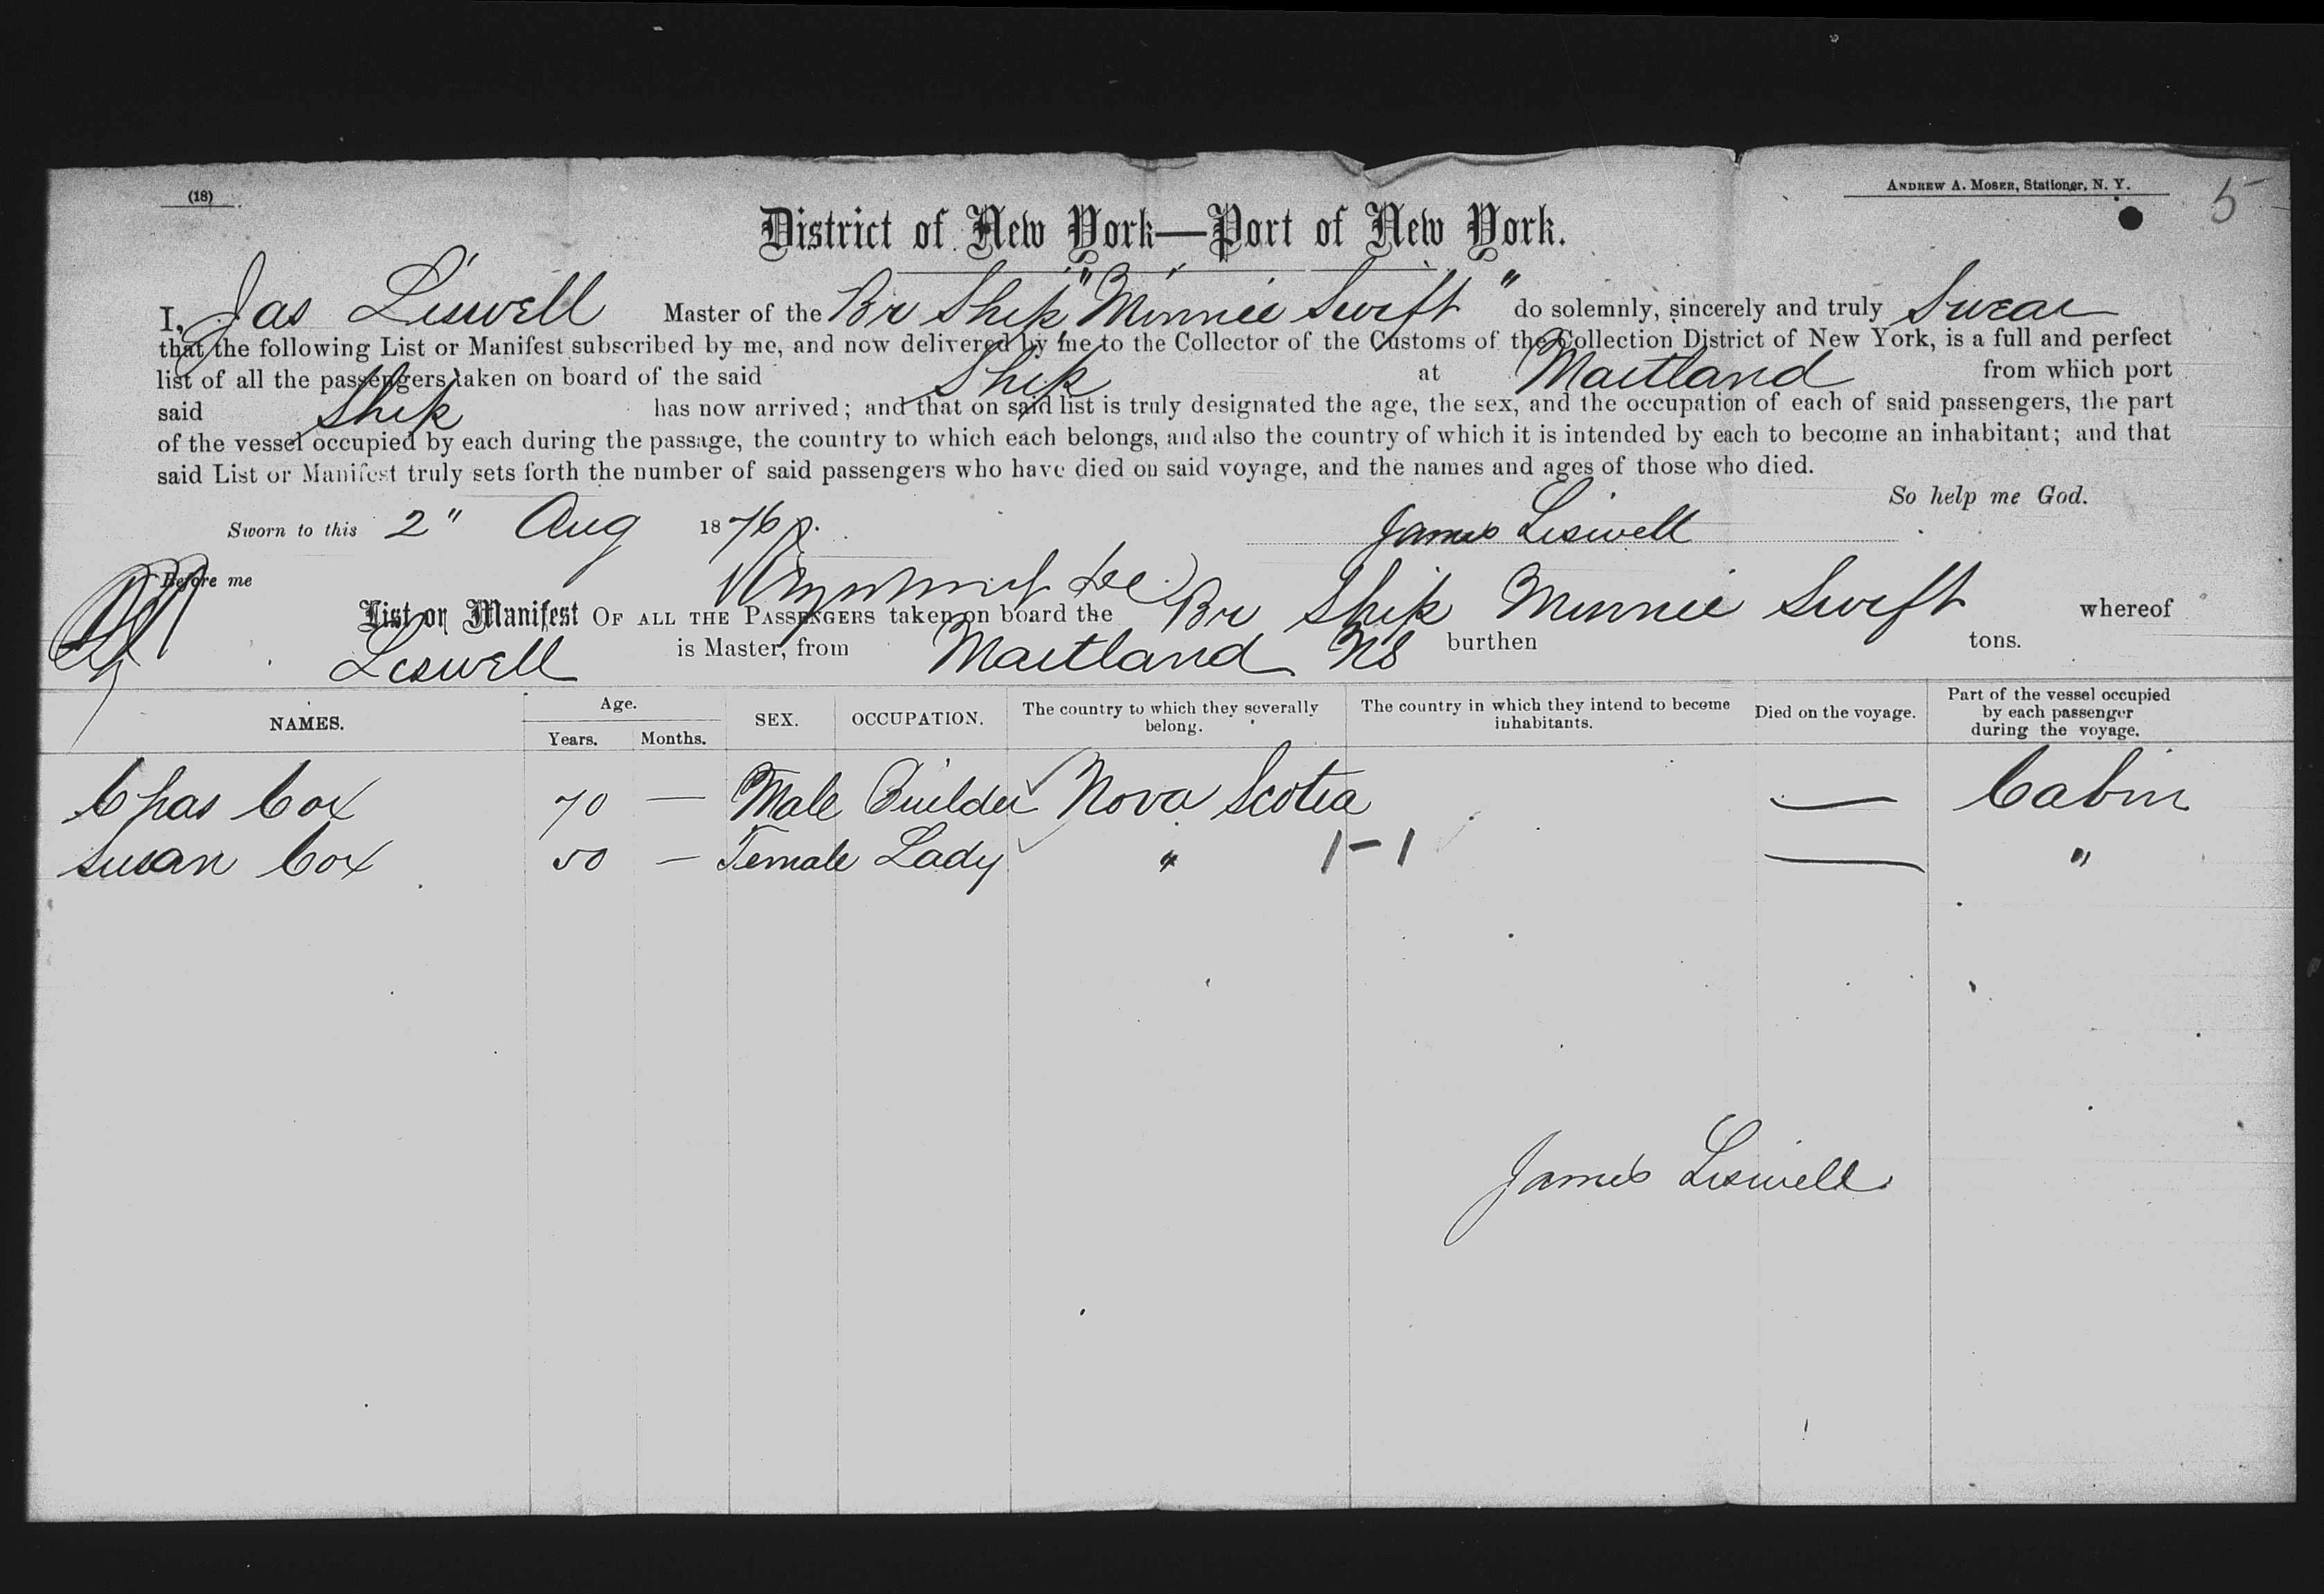 (18)
ANDREW A. MOSER, Stationer, N. Y.
5
District of New York—Port of New York.
I, Jas Liswell Master of the Br Ship "Minnie Swift" do solemnly, sincerely and truly Swear
that the following List or Manifest subscribed by me, and now delivered by me to the Collector of the Customs of the Collection District of New York, is a full and perfect
list of all the passengers taken on board of the said Ship at Maitland from which port
said Ship has now arrived; and that on said list is truly designated the age, the sex, and the occupation of each of said passengers, the part
of the vessel occupied by each during the passage, the country to which each belongs, and also the country of which it is intended by each to become an inhabitant; and that
said List or Manifest truly sets forth the number of said passengers who have died on said voyage, and the names and ages of those who died.
So help me God.
Sworn to this 2" Aug 1876 James Liswell
Before me
List or Manifest OF ALL THE PASSENGERS taken on board the Br Ship Minnie Swift whereof
Liswell is Master, from Maitland NS burthen tons.
NAMES. Age. Years. Months. SEX. OCCUPATION. The country to which they severally belong. The country in which they intend to become inhabitants. Died on the voyage. Part of the vessel occupied by each passenger during the voyage.
Chas Cox 70 — Male Builder Nova Scotia — Cabin
Susan Cox 50 — Female Lady " 1-1 — "
James Liswell